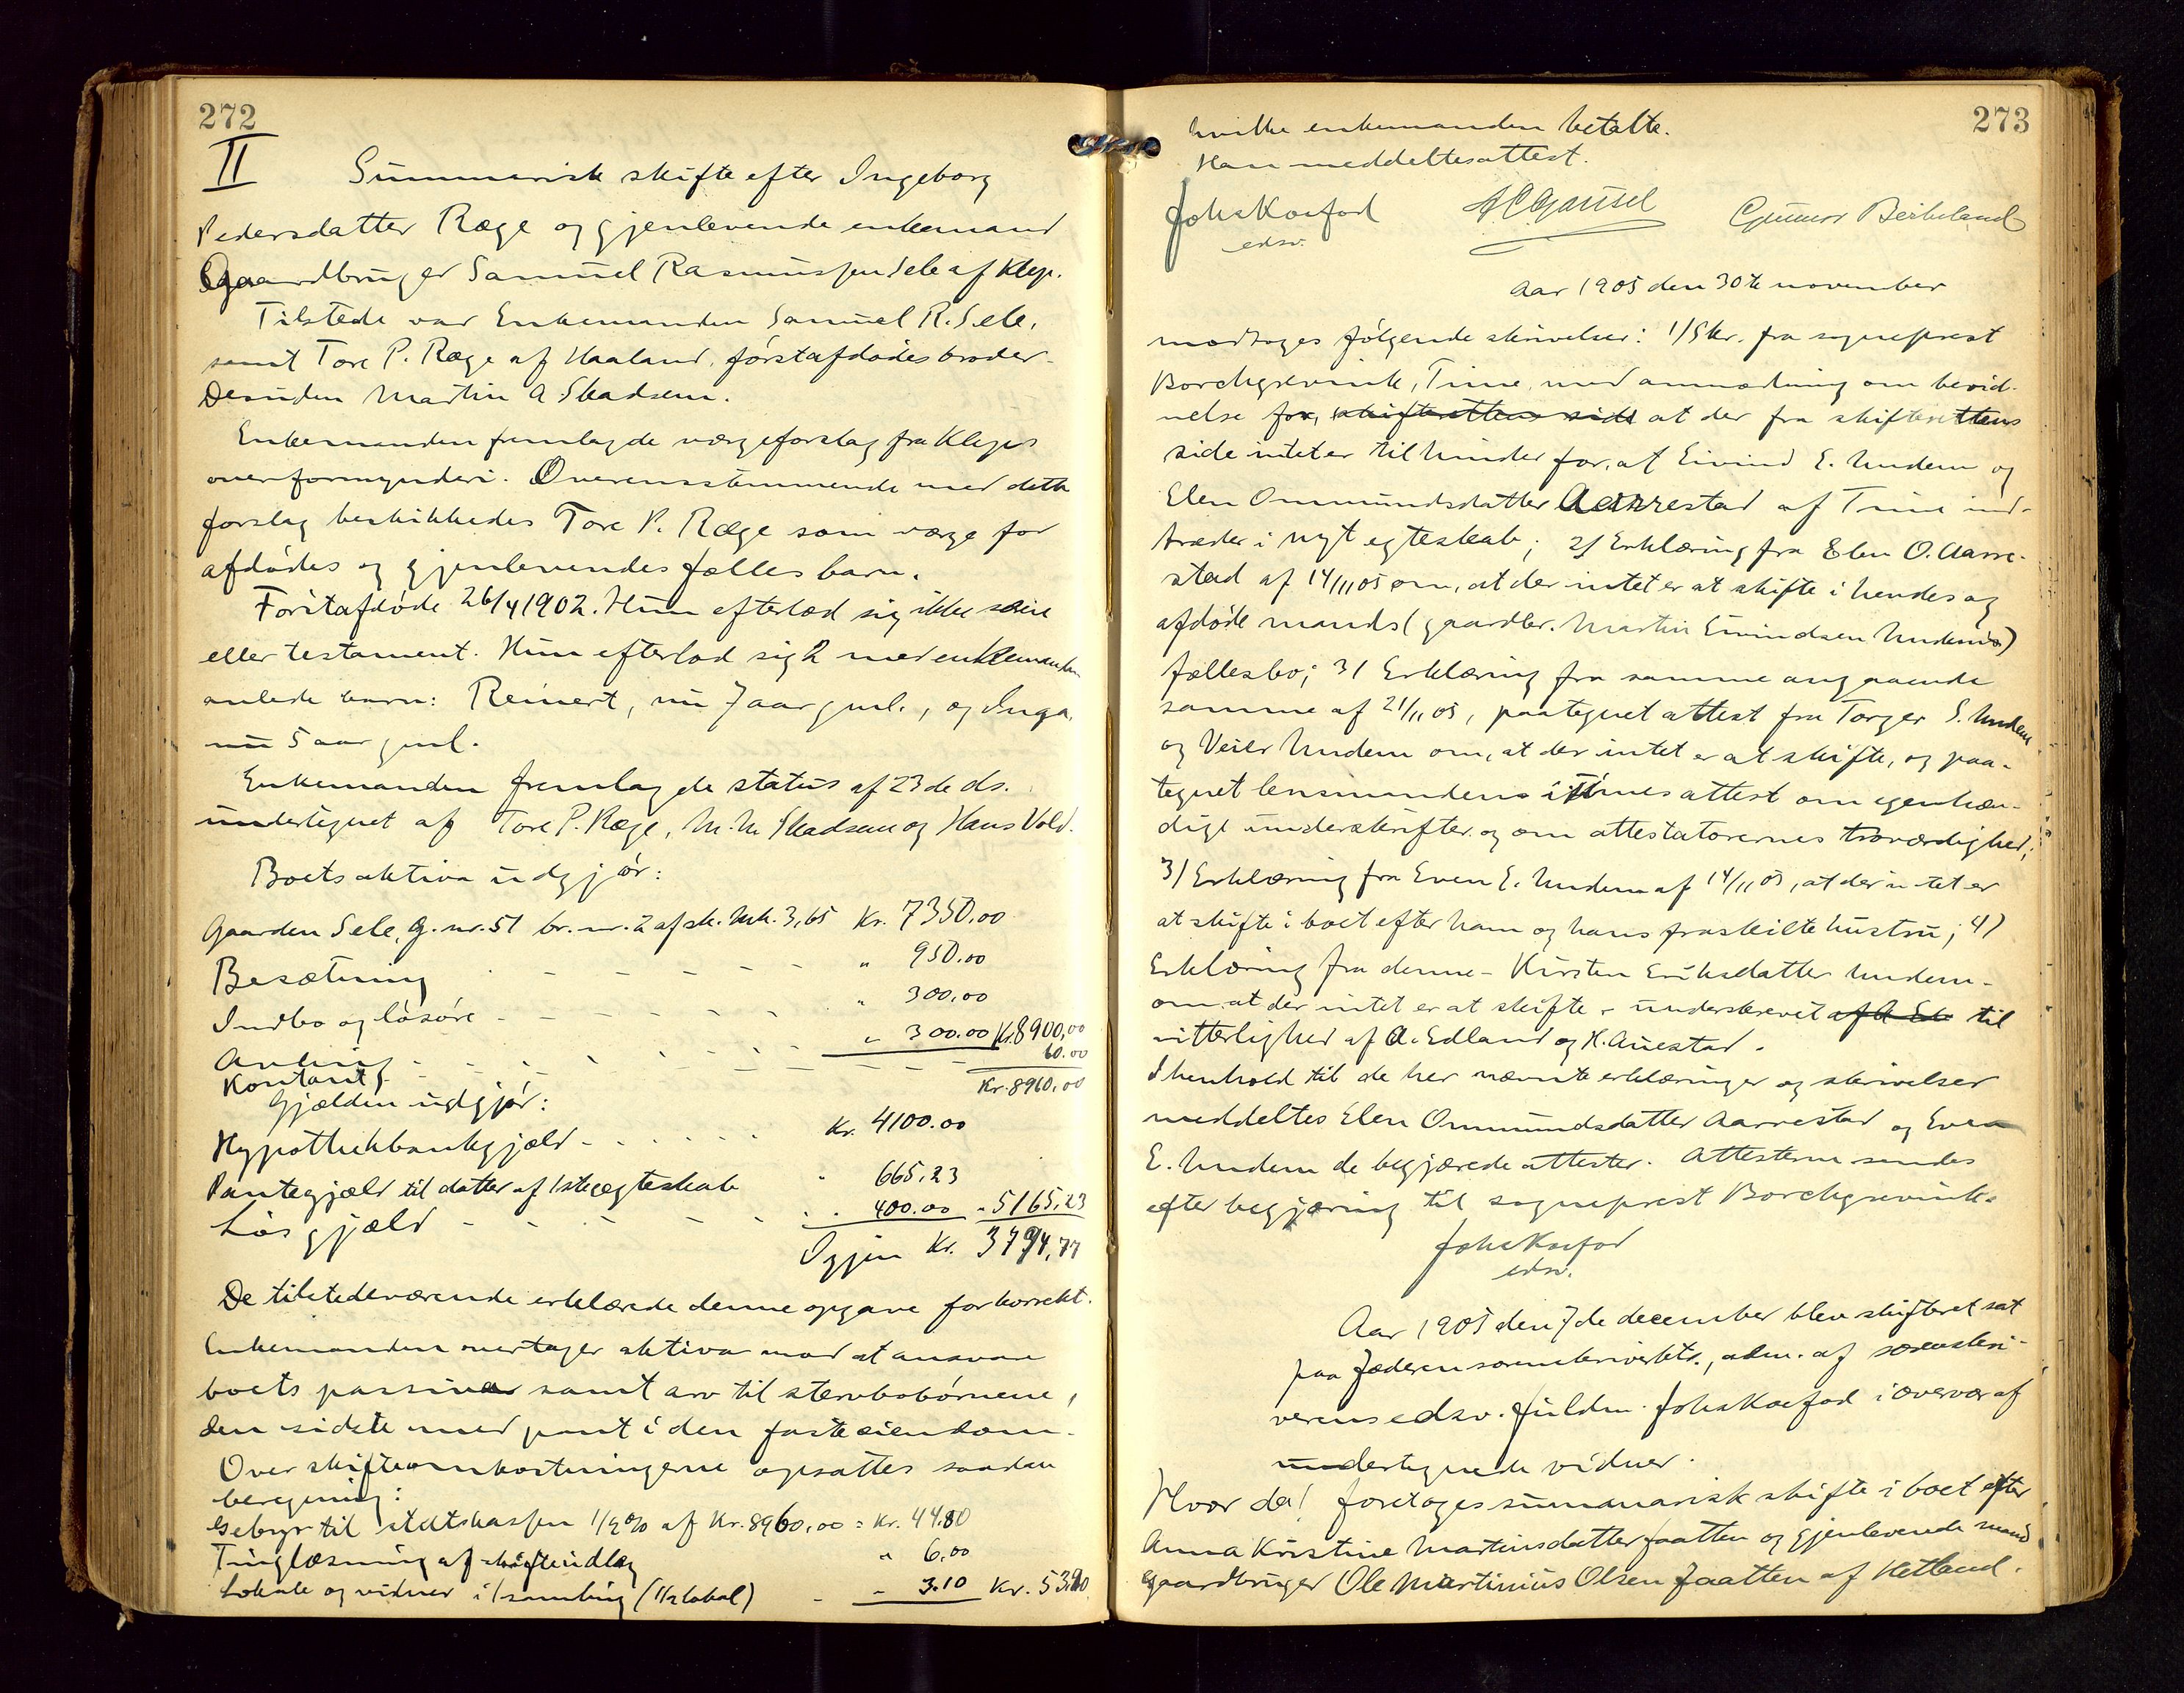 272
II
Summarisk skifte efter Ingeborg
Pedersdatter Ræge og gjenlevende enkemand
Gaardbruger Samuel Rasmussen Sele af Klep.
Tilstede var Enkemanden Samuel R. Sele,
samt Tore P. Ræge af Haaland, førstafdødes broder.
Desuden Martin A Skadsem.
Enkemanden fremlagde værgeforslag fra Kleps
overformynderi. Overensstemmende med dette
forslag beskikkedes Tore P. Ræge som værge for
afdødes og gjenlevendes fælles barn.
Førstafdøde 26/4 1902. Hun efterlod sig ikke
eller testament. Hun efterlod sig 2 med enkemanden
avlede barn: Reinert, nu 7 aar gml., og Inga,
nu 5 aar gml.
Enkemanden fremlagde status af 23de ds.
undertegnet af Tore P. Ræge, M. M. Skadsem og Hans Vold.
Boets aktiva udgjør:
Gaarden Sele, g. nr. 51 br. nr. 2 af sk. Mk. 3,65 Kr. 7350.00
Besætning - - - - - " 950.00
Indbo og løsøre - - - - - " 300.00
Avling - - - - - " 300.00 Kr. 8900,00
Kontant - - - - - 60.00
Kr. 8960,00
Gjælden udgjør:
Hypothekbankgjæld - - - - - Kr. 4100.00
Pantegjæld til datter af 1ste ægteskab " 665,23
Løs gjæld - - - - - " 400.00 - 5165,23
Igjen Kr. 3794,77
De tilstedeværende erklærede denne opgave for korrekt.
Enkemanden overtager aktiva mod at ansvare
boets passiva samt arv til stervbobørnene,
den sidste med pant i den faste eiendom.
Over skifteomkostningerne opsattes saadan
beregning:
Gebyr til statskassen 1/2 % af Kr. 8960,00 = Kr. 44.80
Tinglæsning af skifteudlæg " 6.00
Lokale og vidner i 1 samling (1/2 lokal) - " 3.10 Kr. 53.90
273
hvilke enkemanden betalte.
Han meddeltes attest.
Johs Koefod
edsv.
Gausel
Gunnar Berkeland
Aar 1905 den 30te november
modtoges følgende skrivelser: 1/ Skr. fra sogneprest
Borchgrevink, Time, med anmodning om bevid-
nelse for, skifterettens side at der fra skifterettens
side intet er til hinder for, at Eivind E. Undem og
Elen Ommundsdatter Aarrestad af Time ind-
træder i nyt egteskab; 2/ Erklæring fra Elen O. Aarre-
stad af 14/11 05 om, at der intet er at skifte i hendes og
afdøde mands (gaardbr. Martin Eivindsen Undems)
fællesbo; 3/ Erklæring fra samme angaaende
samme af 21/11 05, paategnet attest fra Torger S. Undem
og Veier Undem om, at der intet er at skifte, og paa-
tegnet lensmanden i Times attest om egenhæn-
dige underskrifter og om attestatorernes troværdighed;
3/ Erklæring fra Even E. Undem af 14/11 05, at der intet er
at skifte i boet efter ham og hans fraskilte hustru; 4/
Erklæring fra denne - Kirsten Eriksdatter Undem -
om at der intet er at skifte - underskrevet af A Ed til
vitterlighed af A. Edland og H. Auestad.
I henhold til de her nævnte erklæringer og skrivelser
meddeltes Elen Ommundsdatter Aarrestad og Even
E. Undem de begjærede attester. Attesterne sendes
efter begjæring til sogneprest Borchgrevink.
Johs Koefod
edsv.
Aar 1905 den 7de december blev skifteret sat
paa Jæderen sorenskriverkt., adm. af sorenskri-
verens edsv. fuldm. Johs Koefod i overvær af
undertegnede vidner.
Hvor da! foretoges summarisk skifte i boet efter
Anna Kristine Martinsdatter Jaatten og gjenlevende mand
gaardbruger Ole Martinius Olsen Jaatten af Hetland.